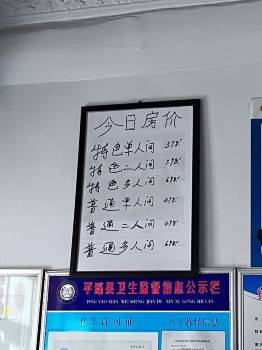 今日房价
特色单人间 598
特色二人间 598
特色多人间 698
普通单人间 498
普通二人间 498
普通多人间 698
平遥县卫生监督信息公示栏
PING YAO XIAN WEI SHENG JIAN DU XIN XI GONG SHI LAN
卫生许可证